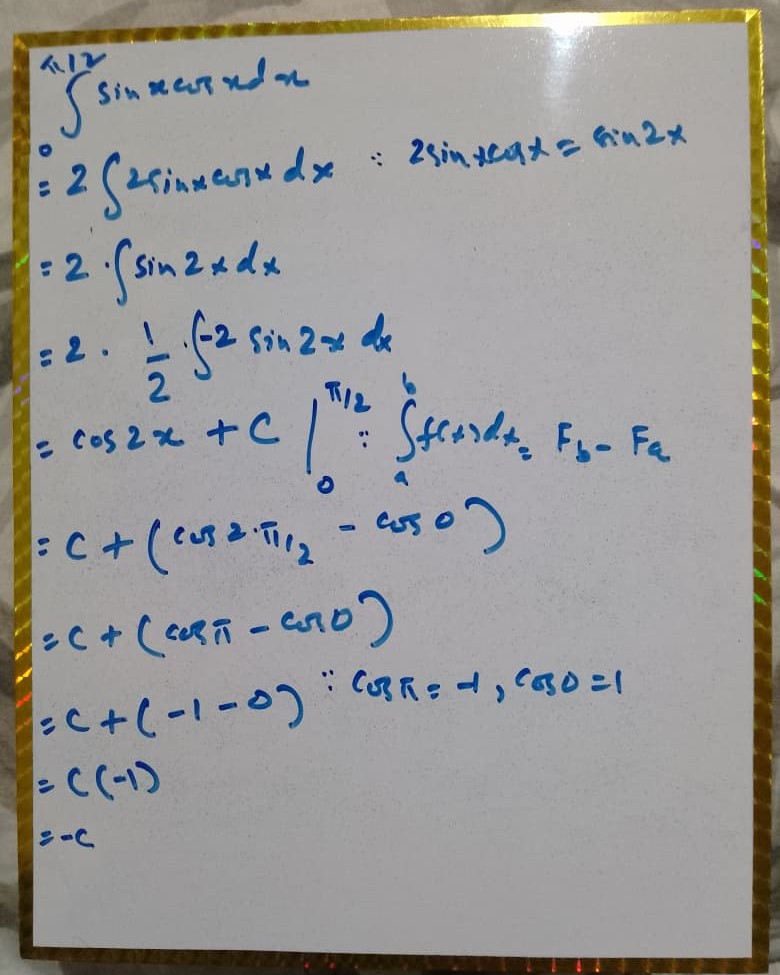 ∫₀^π/2 sin x cos x dx
= 2 ∫ 2sin x cos x dx ∵ 2sin x cos x = sin 2x
= 2 · ∫ sin 2x dx
= 2 · 1/2 · ∫ -2 sin 2x dx
= cos 2x + C |₀^π/2 ∵ ∫ₐᵇ f(x) dx = F_b - F_a
= C + (cos 2·π/2 - cos 0)
= C + (cos π - cos 0)
= C + (-1 - 0) ∵ cos π = -1, cos 0 = 1
= C(-1)
= -C